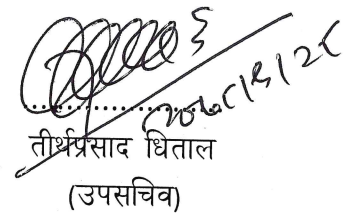 तीर्थप्रसाद धिताल
(उपसचिव)